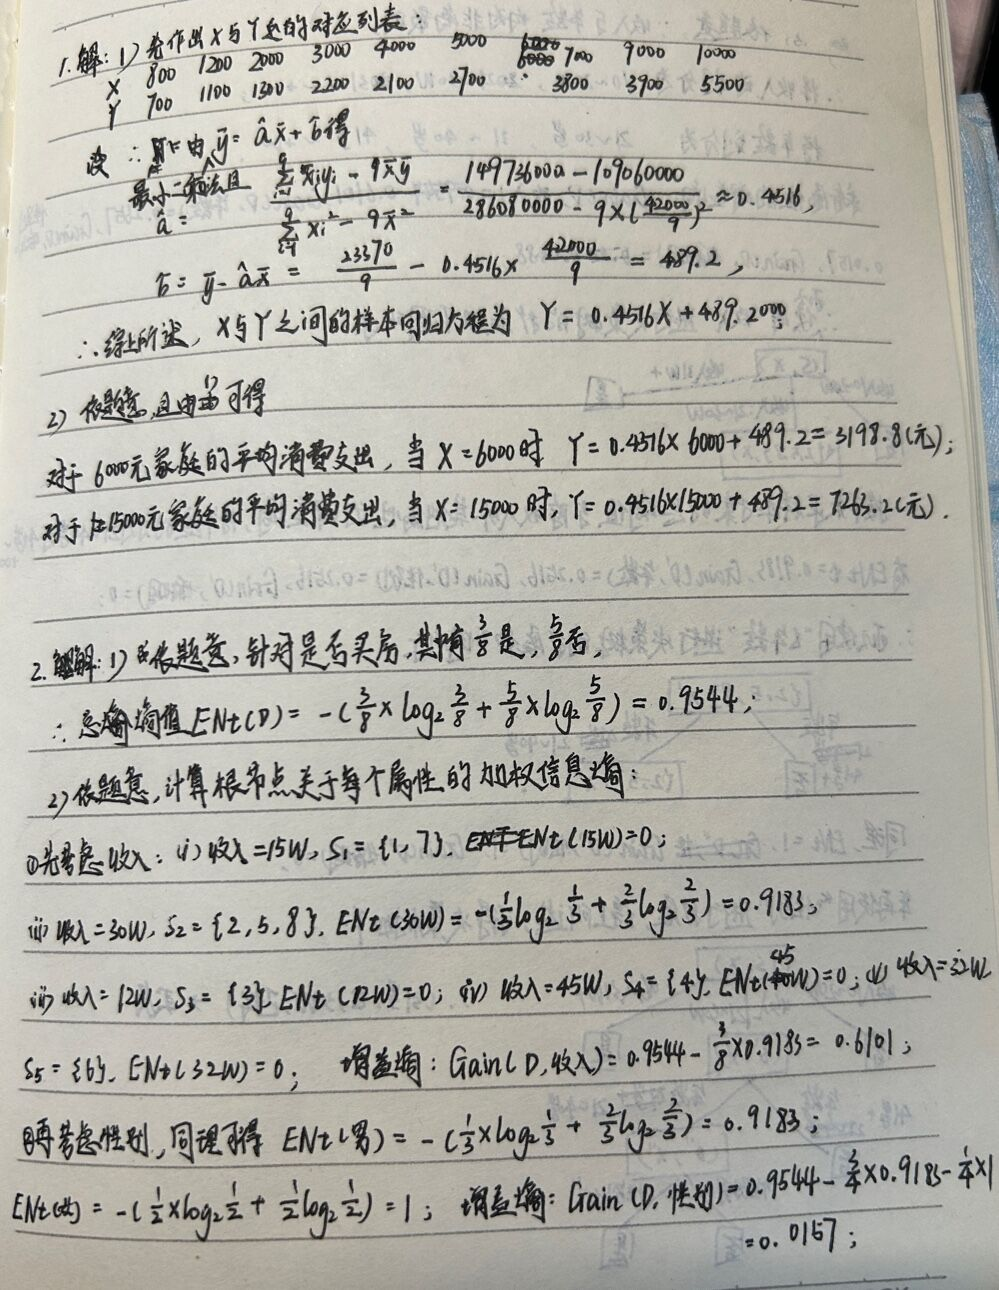 1.解：1）先作出X与Y之的对应列表：
X 800 1200 2000 3000 4000 5000 7000 9000 10000
Y 700 1100 1300 2200 2100 2700 3800 3900 5500
∴由 ȳ=âx̄+b̂得
最小二乘法且
â = (∑xiyi - 9x̄ȳ)/(∑xi² - 9x̄²) = (149736000 - 109060000)/(286080000 - 9×(42000/9)²) ≈ 0.4516,
b̂ = ȳ - âx̄ = 23370/9 - 0.4516× 42000/9 = 489.2,
∴综上所述, X与Y之间的样本回归方程为 Y=0.4516X+489.2000;
2）依题意,且由1）可得
对于6000元家庭的平均消费支出, 当X=6000时 Y=0.4516×6000+489.2=3198.8(元);
对于15000元家庭的平均消费支出, 当X=15000时, Y=0.4516×15000+489.2=7263.2(元).
2.解：1）依题意, 针对是否买房, 其中有3/8是, 5/8否,
∴总熵值ENt(D)= -(3/8×log₂3/8+5/8×log₂5/8)=0.9544;
2）依题意, 计算根节点关于每个属性的加权信息熵:
①先考虑收入: (i)收入=15W, S₁={1,7}, ENt(15W)=0;
(ii)收入=30W, S₂={2,5,8}, ENt(30W)=-(1/3log₂1/3+2/3log₂2/3)=0.9183;
(iii)收入=12W, S₃={3}, ENt(12W)=0; (iv)收入=45W, S₄={4}, ENt(45W)=0; (v)收入=32W
S₅={6}, ENt(32W)=0; 增益熵: Gain(D,收入)=0.9544-3/8×0.9183=0.6101;
②再考虑性别, 同理可得 ENt(男)=-(1/3×log₂1/3+2/3log₂2/3)=0.9183;
ENt(女)=-(1/2×log₂1/2+1/2log₂1/2)=1; 增益熵: Gain(D,性别)=0.9544-3/4×0.9183-1/4×1
=0.0157;